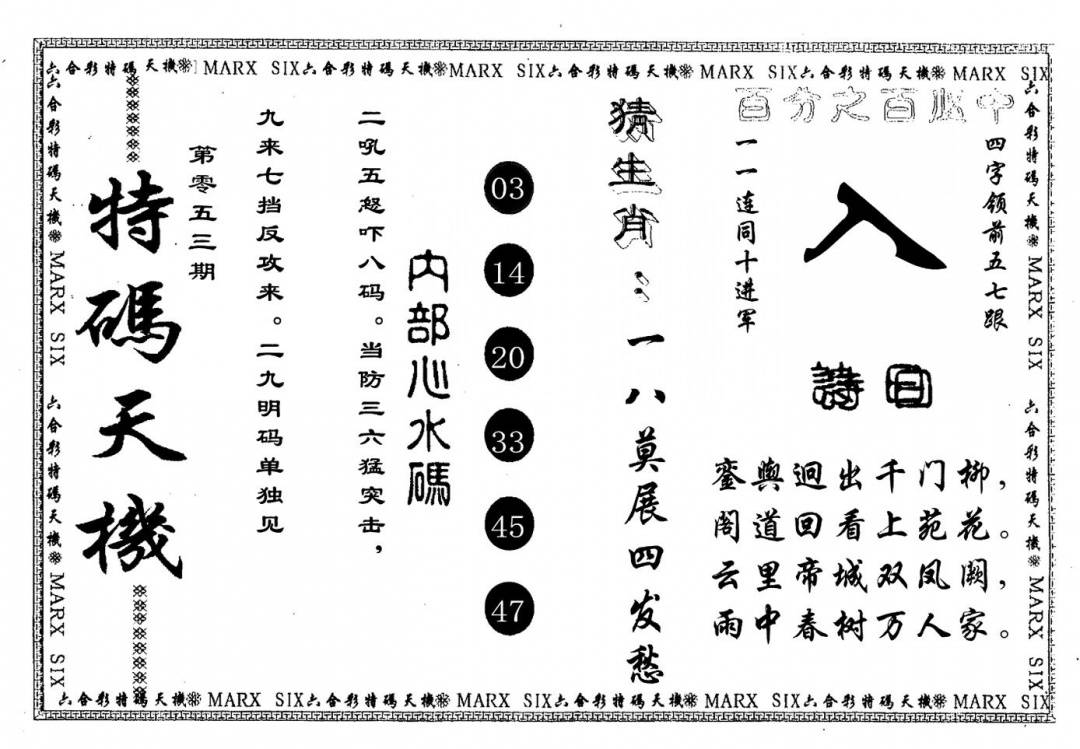 六合彩特碼天機 MARX SIX六合彩特碼天機MARX SIX六合彩特碼天機 MARX SIX六合彩特碼天機 MARX SIX
六合彩特碼天機 MARX SIX 六合彩特碼天機 MARX SIX
六合彩特碼天機 MARX SIX 六合彩特碼天機 MARX SIX
百分之百必中
四字领前五七跟
入
一一连同十进军
诗曰
銮舆迥出千门柳，
阁道回看上苑花。
云里帝城双凤阙，
雨中春树万人家。
猜生肖：一八莫展四发愁
03
14
20
33
45
47
内部心水碼
二吼五怒吓八码。当防三六猛突击，
九来七挡反攻来。二九明码单独见
第零五三期
特碼天機
六合彩特碼天機 MARX SIX六合彩特碼天機 MARX SIX六合彩特碼天機 MARX SIX六合彩特碼天機 MARX SIX